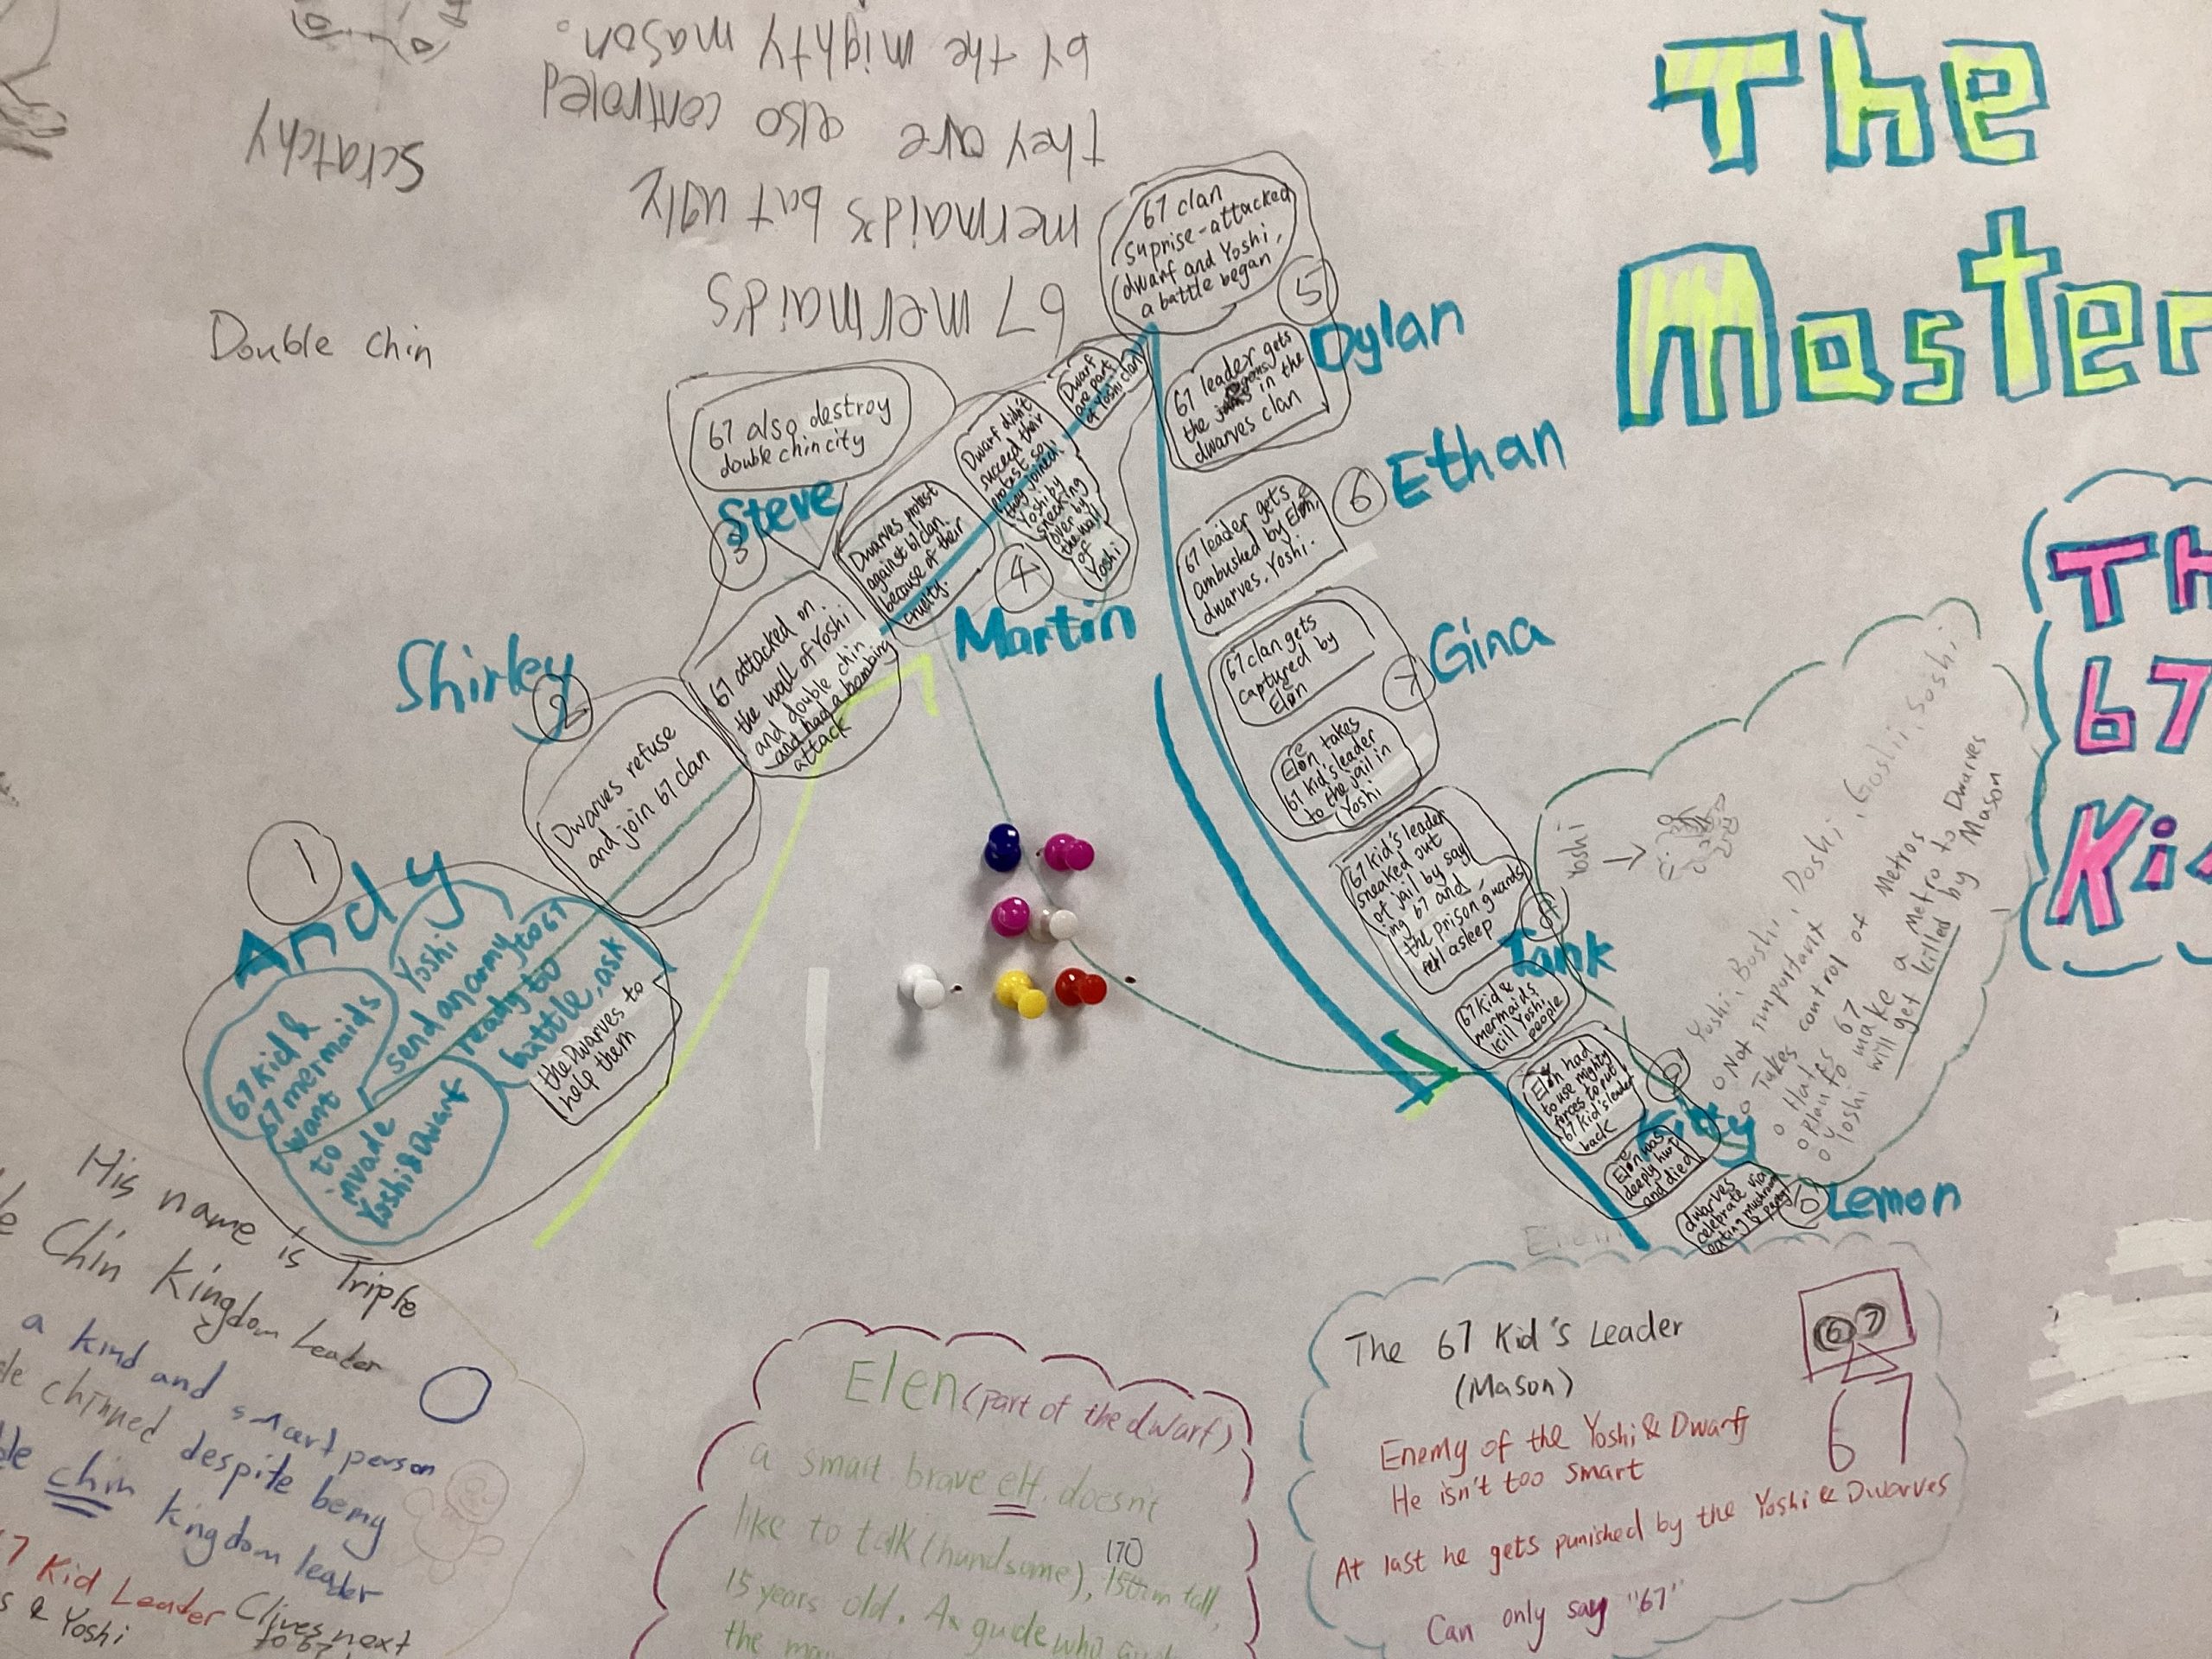 The
Master
Th
67
Ki
by the mighty mason.
they are also controled
mermaid's but ugly
67 mermaids
scratchy
Double chin
1
Andy
67 kid &
67 mermaids
want
to
invade
Yoshi & Dwarf
Yoshi
send an army to 67
ready to
battle, ask
the Dwarves to
help them
Shirley
2
Dwarves refuse
and join 67 clan
Steve
3
67 also destroy
double chin city
67 attacked on
the wall of Yoshi
and double chin
and had a bombing
attack
Martin
4
Dwarves protest
against 67 clan
because of their
cruelty.
Dwarf didn't
succeed their
protest so
they joined
Yoshi by
sneaking
over by
the wall
of
Yoshi
Dwarf
are part
of Yoshi clan
67 clan
suprise-attacked
dwarf and Yoshi,
a battle began
5
Dylan
67 leader gets
the
in the
dwarves clan
6
Ethan
67 leader gets
ambushed by Elen,
dwarves, Yoshi.
7
Gina
67 clan gets
captured by
Elen
Elen takes
67 kid's leader
to the jail in
Yoshi
8
Tank
67 kid's leader
sneaked out
of jail by say
ing 67 and
the prison guards
fell asleep
67 kid &
mermaids
kill Yoshi
people
9
Kitty
Elen had
to use mighty
forces to put
67 kid's leader
back
Elen was
deeply hurt
and died
10
Lemon
dwarves
celebrate via
eating mushroom
& party
Yoshi
Yoshi, Boshi, Doshi, Goshi, Soshi
Not important
Takes control of Metros
Hates 67
Plan to make a Metro to Dwarves
Yoshi will get killed by Mason
His name is Triple
Chin Kingdom Leader
a kind and smart person
chinned despite being
chin kingdom leader
7 Kid Leader Clives next
& Yoshi to 67
Elen (part of the dwarf)
a smart brave elf. doesn't
like to talk (handsome), 170
150cm tall,
15 years old. A guide who
the
The 67 Kid's Leader
(Mason)
67
67
Enemy of the Yoshi & Dwarf
He isn't too smart
At last he gets punished by the Yoshi & Dwarves
Can only say "67"